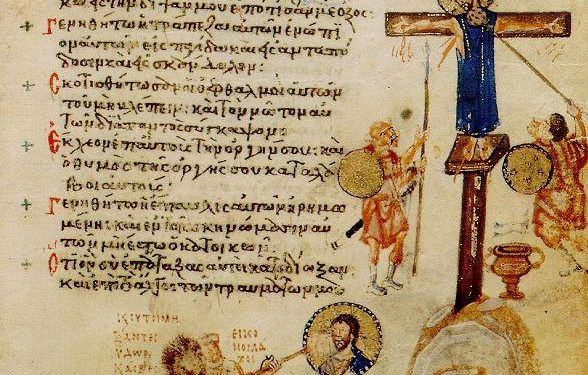 καὶ εἰς τὴν δίψαν μου ἐπότισάν με ὄξος:
Γενηθήτω ἡ τράπεζα αὐτῶν ἐνώπι
ον αὐτῶν εἰς παγίδα καὶ εἰς ἀνταπό
δοσιν καὶ εἰς σκάνδαλον:
Σκοτισθήτωσαν οἱ ὀφθαλμοὶ αὐτῶν
τοῦ μὴ βλέπειν· καὶ τὸν νῶτον αὐ
τῶν διὰ παντὸς σύγκαμψον:
Ἔκχεον ἐπ' αὐτοὺς τὴν ὀργήν σου· καὶ
ὁ θυμὸς τῆς ὀργῆς σου καταλά
βοι αὐτούς:
Γενηθήτω ἡ ἔπαυλις αὐτῶν ἠρημω
μένη· καὶ ἐν τοῖς σκηνώμασιν αὐ
τῶν μὴ ἔστω ὁ κατοικῶν:
Ὅτι ὃν σὺ ἐπάταξας αὐτοὶ κατεδίωξαν·
καὶ ἐπὶ τὸ ἄλγος τῶν τραυμάτων μου
ΞΑΝΤΕΣ
ΥΔΩΡ
ΕΙΚΟ
ΝΟΜΑ
ΧΟΙ